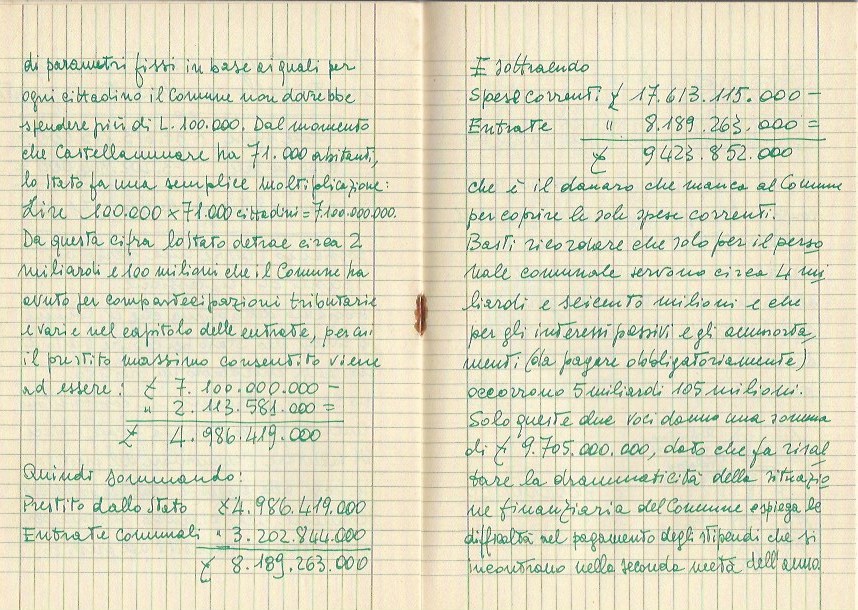 di parametri fissi in base ai quali per
ogni cittadino il Comune non dovrebbe
spendere più di L. 100.000. Dal momento
che Castellammare ha 71.000 abitanti,
lo Stato fa una semplice moltiplicazione:
Lire 100.000 x 71.000 cittadini = 7.100.000.000.
Da questa cifra lo Stato detrae circa 2
miliardi e 100 milioni che il Comune ha
avuto per compartecipazioni tributarie
e varie nel capitolo delle entrate, per cui
il prestito massimo consentito viene
ad essere: £ 7.100.000.000 -
" 2.113.581.000 =
£ 4.986.419.000
Quindi sommando:
Prestito dallo Stato £ 4.986.419.000
Entrate comunali " 3.202.844.000
£ 8.189.263.000
E sottraendo
Spese correnti £ 17.613.115.000 -
Entrate " 8.189.263.000 =
£ 9423.852.000
che è il danaro che manca al Comune
per coprire le sole spese correnti.
Basti ricordare che solo per il perso
nale comunale servono circa 4 mi
liardi e seicento milioni e che
per gli interessi passivi e gli ammorta
menti (da pagare obbligatoriamente)
occorrono 5 miliardi 105 milioni.
Solo queste due voci danno una somma
di £ 9.705.000.000, dato che fa risal
tare la drammaticità della situazio
ne finanziaria del Comune e spiega le
difficoltà nel pagamento degli stipendi che si
incontrano nella seconda metà dell'anno.